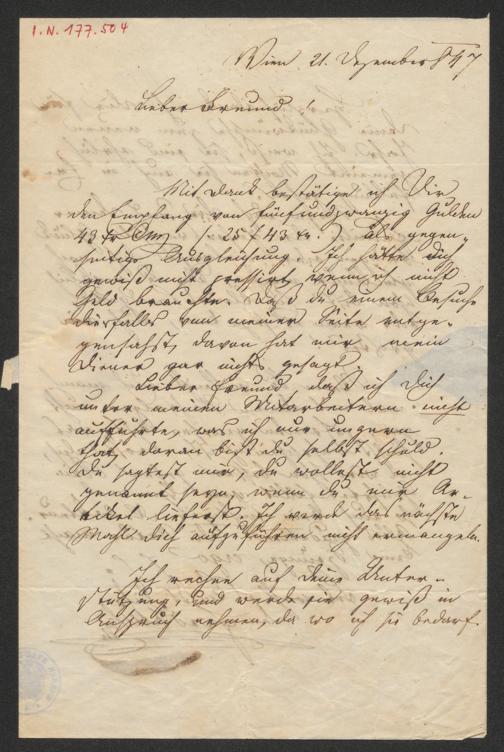 I.N. 177.504
Wien 21. Dezember 847
Lieber Freund!
Mit Dank bestätige ich Dir
den Empfang von fünfundzwanzig Gulden
43 xr CMz /: 25 f 43 xr. :/ als gegen-
seitige Ausgleichung. Ich hätte Dich
gewiß nicht pressirt, wenn ich nicht
Geld brauchte. Daß du einem Besuche
diesfalls von meiner Seite entge-
gensahst, davon hat mir mein
Diener gar nichts gesagt
Lieber Freund, daß ich Dich
unter meinen Mitarbeitern nicht
aufführte, was ich nur ungern
that, daran bist du selbst schuld.
Du sagtest mir, du wollest nicht
genannt seyn, wenn du mir Ar-
tikel lieferst. Ich werde das nächste
Mahl dich aufzuführen nicht ermangeln.
Ich rechne auf deine Unter-
stützung, und werde sie gewiß in
Anspruch nehmen, da wo ich sie bedarf.